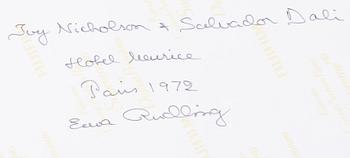 Ivy Nicholson & Salvador Dali
Hotel Meurice
Paris 1972
Ewa Rudling